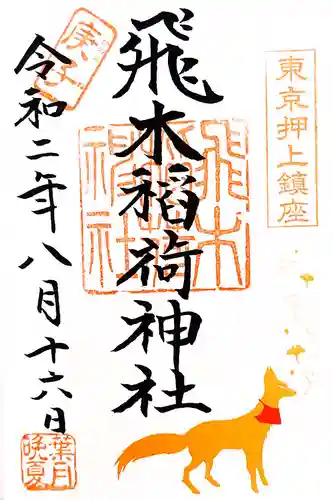 東京押上鎮座
飛木稲荷神社
飛木稲荷神社
庚子
令和二年八月十六日
葉月
晩夏